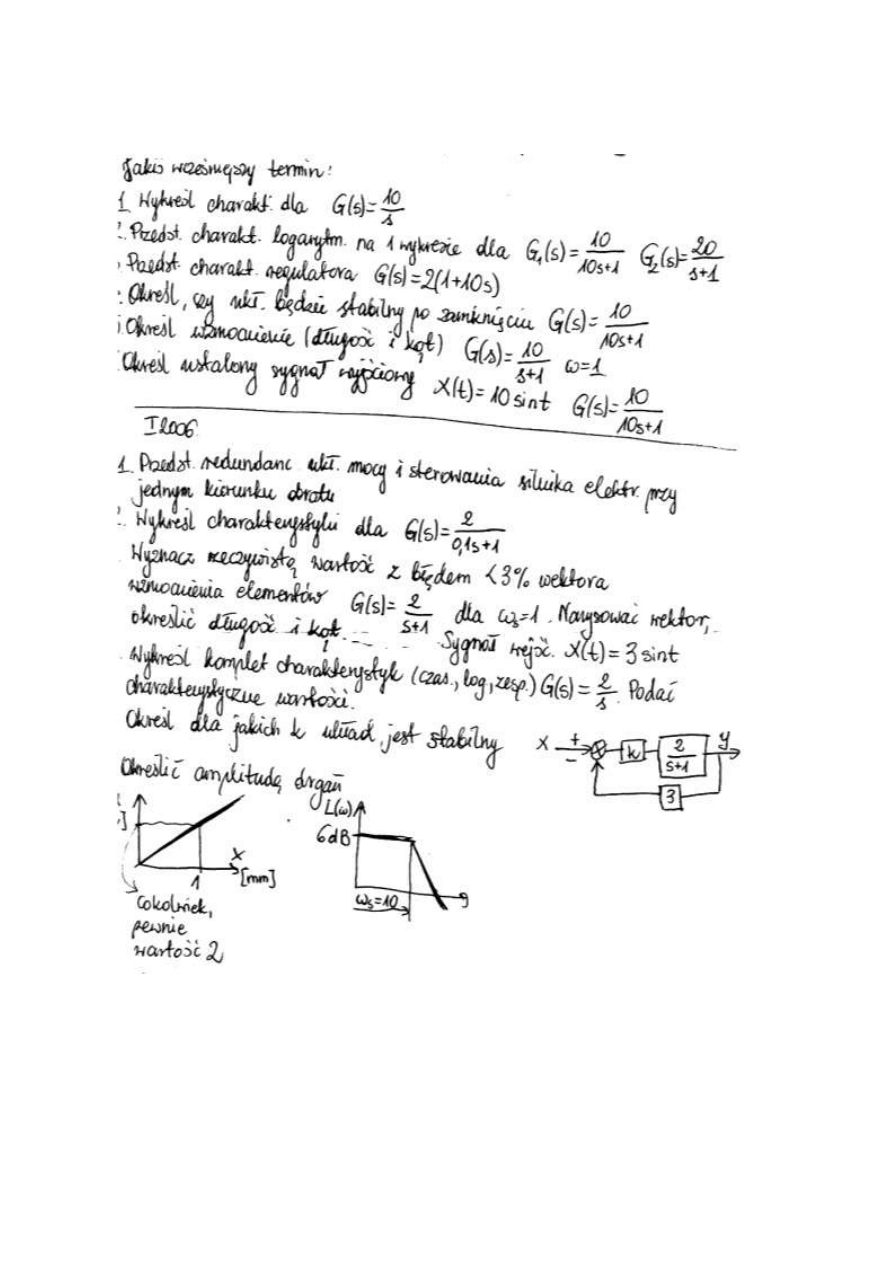 Jakiś wcześniejszy termin:
1. Wykreśl charakt. dla G(s)=10/s
Przedst. charakt. logarytm. na 1 wykresie dla G₁(s)=10/10s+1 G₂(s)=20/s+1
Przedst. charakt. regulatora G(s)=2(1+10s)
Określ, czy ukł. będzie stabilny po zamknięciu G(s)=10/10s+1
Określ wzmocnienie (długość i kąt) G(s)=10/s+1 ω=1
Określ ustalony sygnał wyjściowy X(t)=10 sint G(s)=10/10s+1
I 2006
1. Przedst. redundanc ukł. mocy i sterowania silnika elektr. przy
jednym kierunku obrotu
Wykreśl charakterystyki dla G(s)=2/0,1s+1
Wyznacz rzeczywistą wartość z błędem <3% wektora
wzmocnienia elementów G(s)=2/s+1 dla ω=1. Narysować wektor,
określić długość i kąt. Sygnał wejść. X(t)=3 sint
Wykreśl komplet charakterystyk (czas., log, zesp.) G(s)=2/s. Podać
charakterystyczne wartości.
Określ dla jakich k układ jest stabilny
X + - k 2/s+1 y
3
Określić amplitudę drgań
X
[mm]
1
Cokolwiek,
pewnie
wartość 2
L(ω)
6dB
ωs=10